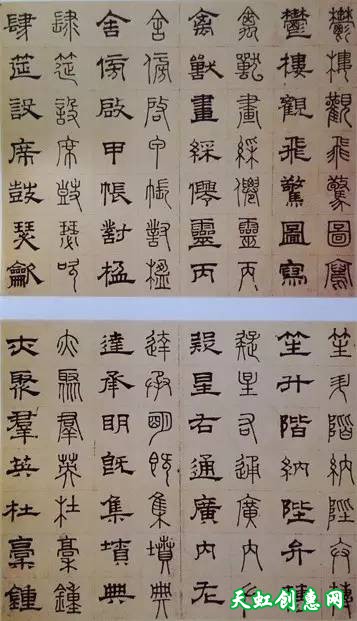 鬱樓觀飛驚圖寫
鬱樓觀飛驚圖寫
禽獸畫綵僊靈丙
禽獸畫綵僊靈丙
舍傍啟甲帳對楹
舍傍啟甲帳對楹
肆筵設席鼓瑟吹
肆筵設席鼓瑟龡
笙升階納陛弁轉
笙升階納陛弁轉
疑星右通廣內左
疑星右通廣內左
達承明既集墳典
達承明既集墳典
亦聚羣英杜稾鍾
亦聚羣英杜稾鍾
天虹创惠网